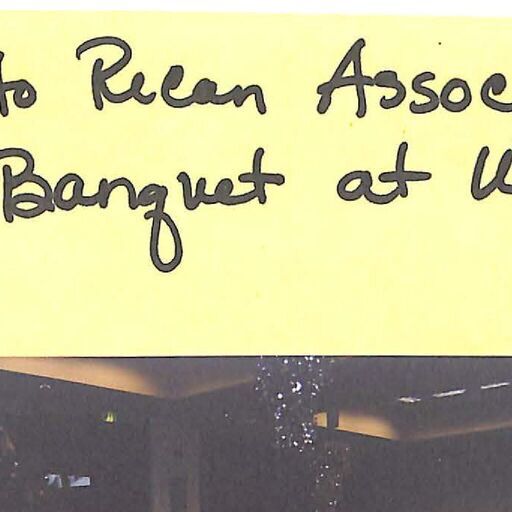 to Rican Assoc
Banquet at